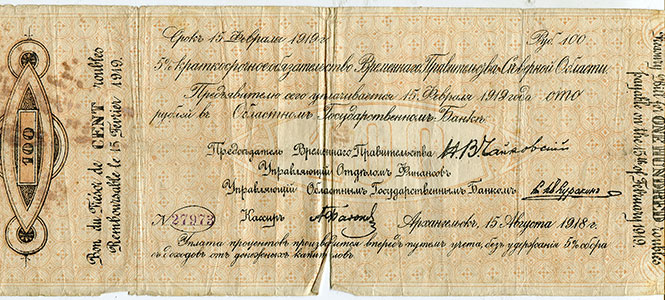 Срокъ 15 Февраля 1919 г.
Руб. 100
5% краткосрочное обязательство Временнаго Правительства Сѣверной Области.
Предъявителю сего уплачивается 15 Февраля 1919 года сто
рублей въ Областномъ Государственномъ Банкѣ.
Председатель Временнаго Правительства Н.В. Чайковский
Управляющий Отделомъ Финансовъ
Управляющий Областнымъ Государственнымъ Банкомъ
№ 27973 Кассиръ
Архангельскъ, 15 Августа 1918 г.
Уплата процентовъ производится впередъ путемъ учета, безъ удержания 5% сбора
съ доходовъ отъ денежныхъ капиталовъ
100
Bon du Trésor de CENT roubles
Remboursable le 15 Février 1919.
Treasury Bill for ONE HUNDRED roubles
payable on the 15th of February 1919.